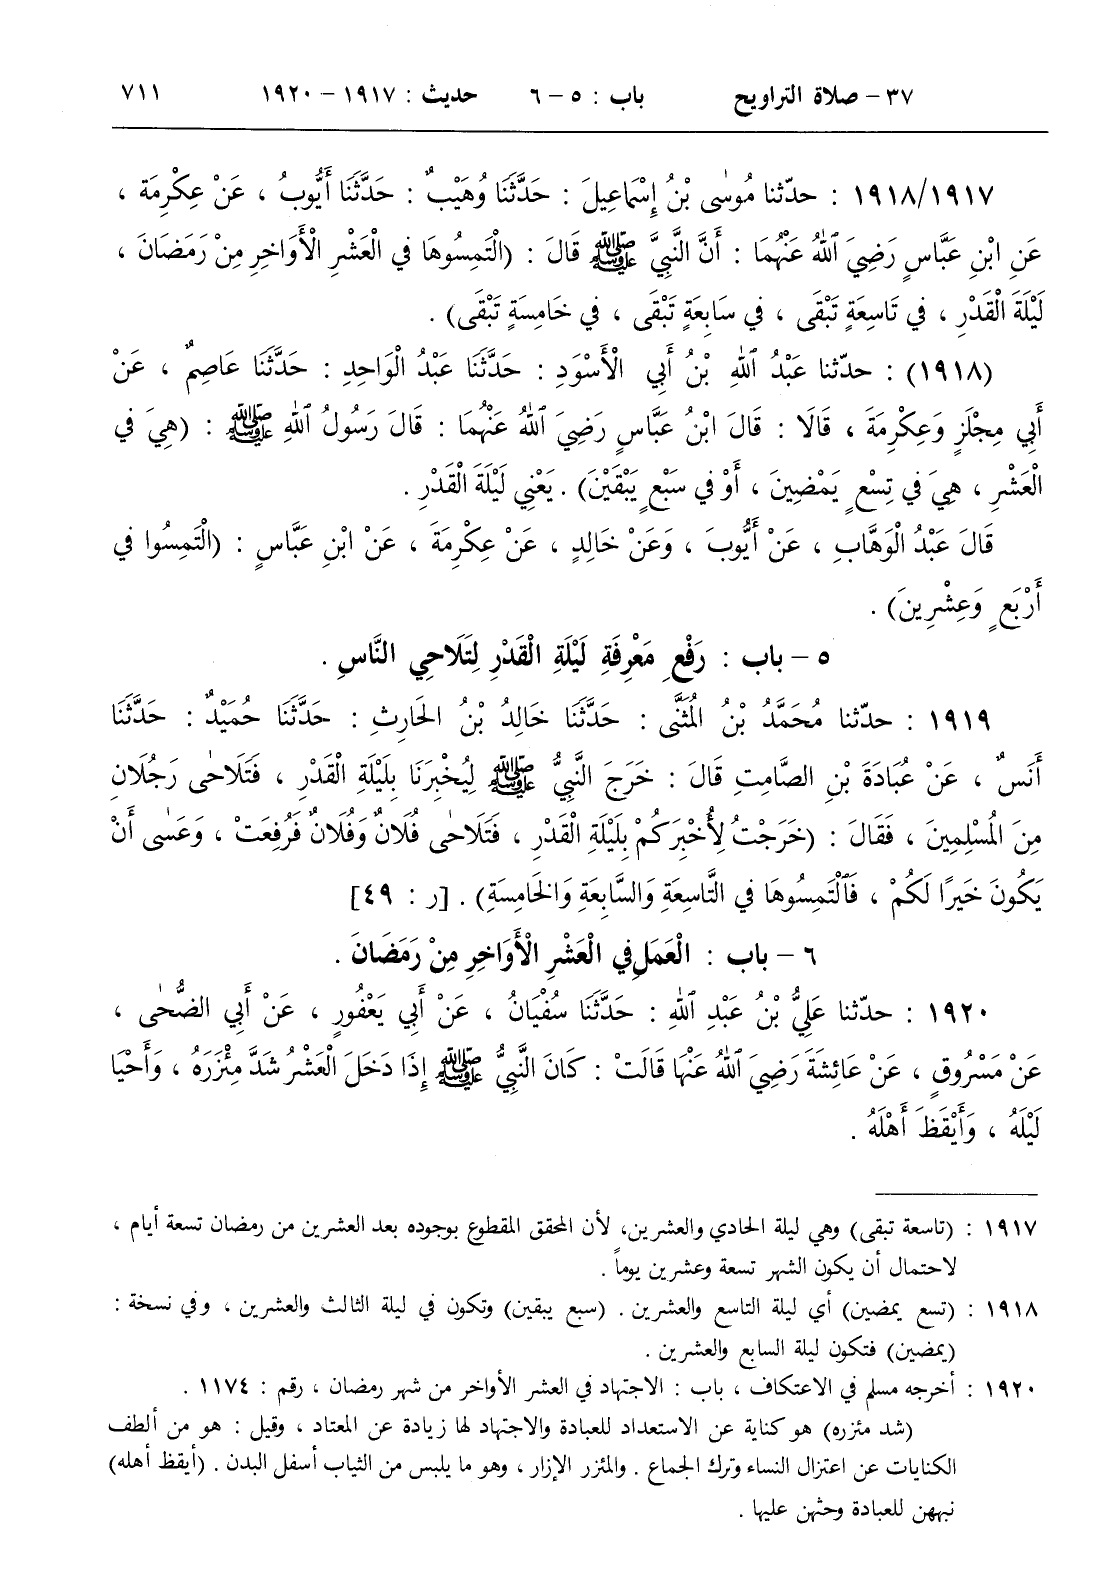 ٣٧ – صلاة التراويح باب : ٥ – ٦ حديث : ١٩١٧ – ١٩٢٠ ٧١١
١٩١٨/١٩١٧ : حدّثنا مُوسٰى بْنُ إِسْمَاعِيلَ : حَدَّثَنَا وُهَيْبٌ : حَدَّثَنَا أَيُّوبُ ، عَنْ عِكْرِمَةَ ،
عَنِ ابْنِ عَبَّاسٍ رَضِيَ ٱللهُ عَنْهُمَا : أَنَّ النَّبِيَّ ﷺ قَالَ : (الْتَمِسُوهَا فِي الْعَشْرِ الْأَوَاخِرِ مِنْ رَمَضَانَ ،
لَيْلَةَ الْقَدْرِ ، فِي تَاسِعَةٍ تَبْقَى ، فِي سَابِعَةٍ تَبْقَى ، فِي خَامِسَةٍ تَبْقَى) .
(١٩١٨) : حدّثنا عَبْدُ ٱللهِ بْنُ أَبِي الْأَسْوَدِ : حَدَّثَنَا عَبْدُ الْوَاحِدِ : حَدَّثَنَا عَاصِمٌ ، عَنْ
أَبِي مِجْلَزٍ وَعِكْرِمَةَ ، قَالَا : قَالَ ابْنُ عَبَّاسٍ رَضِيَ ٱللهُ عَنْهُمَا : قَالَ رَسُولُ ٱللهِ ﷺ : (هِيَ فِي
الْعَشْرِ ، هِيَ فِي تِسْعٍ يَمْضِينَ ، أَوْ فِي سَبْعٍ يَبْقَيْنَ) . يَعْنِي لَيْلَةَ الْقَدْرِ .
قَالَ عَبْدُ الْوَهَّابِ ، عَنْ أَيُّوبَ ، وَعَنْ خَالِدٍ ، عَنْ عِكْرِمَةَ ، عَنْ ابْنِ عَبَّاسٍ : (الْتَمِسُوا فِي
أَرْبَعٍ وَعِشْرِينَ) .
٥ – باب : رَفْعِ مَعْرِفَةِ لَيْلَةِ الْقَدْرِ لِتَلَاحِي النَّاسِ .
١٩١٩ : حدّثنا مُحَمَّدُ بْنُ الْمُثَنَّى : حَدَّثَنَا خَالِدُ بْنُ الحَارِثِ : حَدَّثَنَا حُمَيْدٌ : حَدَّثَنَا
أَنَسٌ ، عَنْ عُبَادَةَ بْنِ الصَّامِتِ قَالَ : خَرَجَ النَّبِيُّ ﷺ لِيُخْبِرَنَا بِلَيْلَةِ الْقَدْرِ ، فَتَلَاحٰى رَجُلَانِ
مِنَ الْمُسْلِمِينَ ، فَقَالَ : (خَرَجْتُ لِأُخْبِرَكُمْ بِلَيْلَةِ الْقَدْرِ ، فَتَلَاحٰى فُلَانٌ وَفُلَانٌ فَرُفِعَتْ ، وَعَسٰى أَنْ
يَكُونَ خَيْرًا لَكُمْ ، فَٱلْتَمِسُوهَا فِي التَّاسِعَةِ وَالسَّابِعَةِ وَالخَامِسَةِ) . [ر : ٤٩]
٦ – باب : الْعَمَلِ فِي الْعَشْرِ الْأَوَاخِرِ مِنْ رَمَضَانَ .
١٩٢٠ : حدّثنا عَلِيُّ بْنُ عَبْدِ ٱللهِ : حَدَّثَنَا سُفْيَانُ ، عَنْ أَبِي يَعْفُورٍ ، عَنْ أَبِي الضُّحٰى ،
عَنْ مَسْرُوقٍ ، عَنْ عَائِشَةَ رَضِيَ ٱللهُ عَنْهَا قَالَتْ : كَانَ النَّبِيُّ ﷺ إِذَا دَخَلَ الْعَشْرُ شَدَّ مِئْزَرَهُ ، وَأَحْيَا
لَيْلَهُ ، وَأَيْقَظَ أَهْلَهُ .
١٩١٧ : (تاسعة تبقى) وهي ليلة الحادي والعشرين، لأن المحقق المقطوع بوجوده بعد العشرين من رمضان تسعة أيام ،
لاحتمال أن يكون الشهر تسعة وعشرين يوماً .
١٩١٨ : (تسع يمضين) أي ليلة التاسع والعشرين . (سبع يبقين) وتكون في ليلة الثالث والعشرين ، وفي نسخة :
(يمضين) فتكون ليلة السابع والعشرين .
١٩٢٠ : أخرجه مسلم في الاعتكاف ، باب : الاجتهاد في العشر الأواخر من شهر رمضان ، رقم : ١١٧٤ .
(شد مئزره) هو كناية عن الاستعداد للعبادة والاجتهاد لها زيادة عن المعتاد ، وقيل : هو من ألطف
الكنايات عن اعتزال النساء وترك الجماع . والمئزر الإزار ، وهو ما يلبس من الثياب أسفل البدن . (أيقظ أهله)
نبههن للعبادة وحثهن عليها .